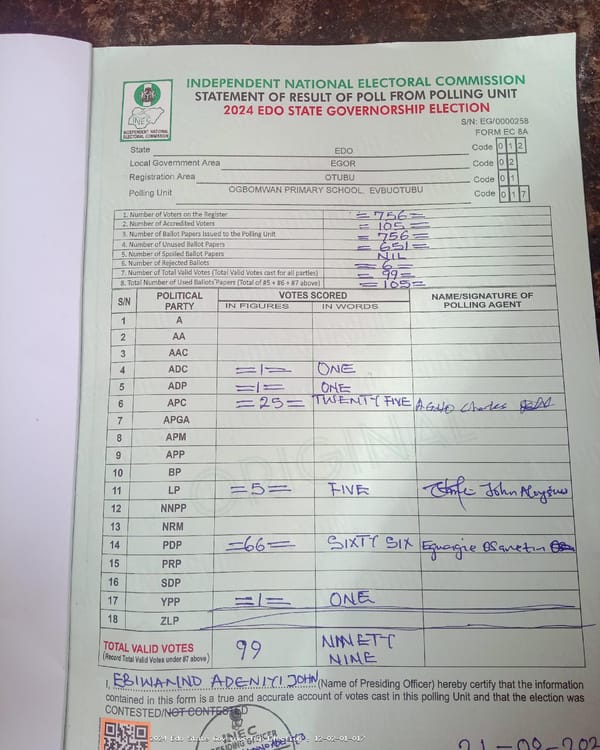 INDEPENDENT NATIONAL ELECTORAL COMMISSION
STATEMENT OF RESULT OF POLL FROM POLLING UNIT
2024 EDO STATE GOVERNORSHIP ELECTION
INEC
INDEPENDENT NATIONAL ELECTORAL COMMISSION
S/N: EG/0000258
FORM EC 8A
State EDO Code 0 1 2
Local Government Area EGOR Code 0 2
Registration Area OTUBU Code 0 1
Polling Unit OGBOMWAN PRIMARY SCHOOL, EVBUOTUBU Code 0 1 7
1. Number of Voters on the Register =756=
2. Number of Accredited Voters =105=
3. Number of Ballot Papers Issued to the Polling Unit =756=
4. Number of Unused Ballot Papers =651=
5. Number of Spoiled Ballot Papers NIL
6. Number of Rejected Ballots =6=
7. Number of Total Valid Votes (Total Valid Votes cast for all parties) =99=
8. Total Number of Used Ballots Papers (Total of #5 + #6 + #7 above) =105=
S/N POLITICAL PARTY VOTES SCORED NAME/SIGNATURE OF POLLING AGENT
IN FIGURES IN WORDS
1 A
2 AA
3 AAC
4 ADC =1= ONE
5 ADP =1= ONE
6 APC =25= TWENTY FIVE Charles
7 APGA
8 APM
9 APP
10 BP
11 LP =5= FIVE John
12 NNPP
13 NRM
14 PDP =66= SIXTY SIX
15 PRP
16 SDP
17 YPP =1= ONE
18 ZLP
ORIGINAL
TOTAL VALID VOTES 99 NINETY NINE
(Record Total Valid Votes under #7 above)
I, EBIWANNO ADENIYI JOHN (Name of Presiding Officer) hereby certify that the information
contained in this form is a true and accurate account of votes cast in this polling Unit and that the election was
CONTESTED/NOT CONTESTED
INEC
PRESIDING OFFICER